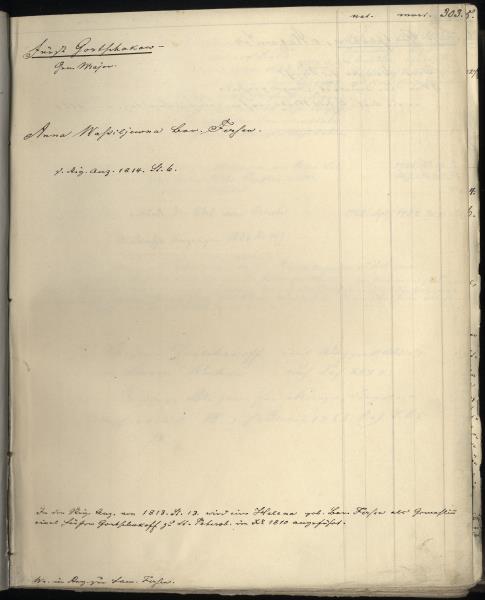 nat. mort. 303.
Fürst Gortschakow –
Gen. Major.
Anna Wassiljewna Bar. Fersen.
v. Rig. Anz. 1814. St. 6.
In den Rig. Anz. von 1813. St. 13. wird eine Helena geb. Bar. Fersen als Gemahlin
eines Fürsten Gortschakoff zu St. Petersb. im 1810 angeführt.
in Anz. zur Fam. Fersen.